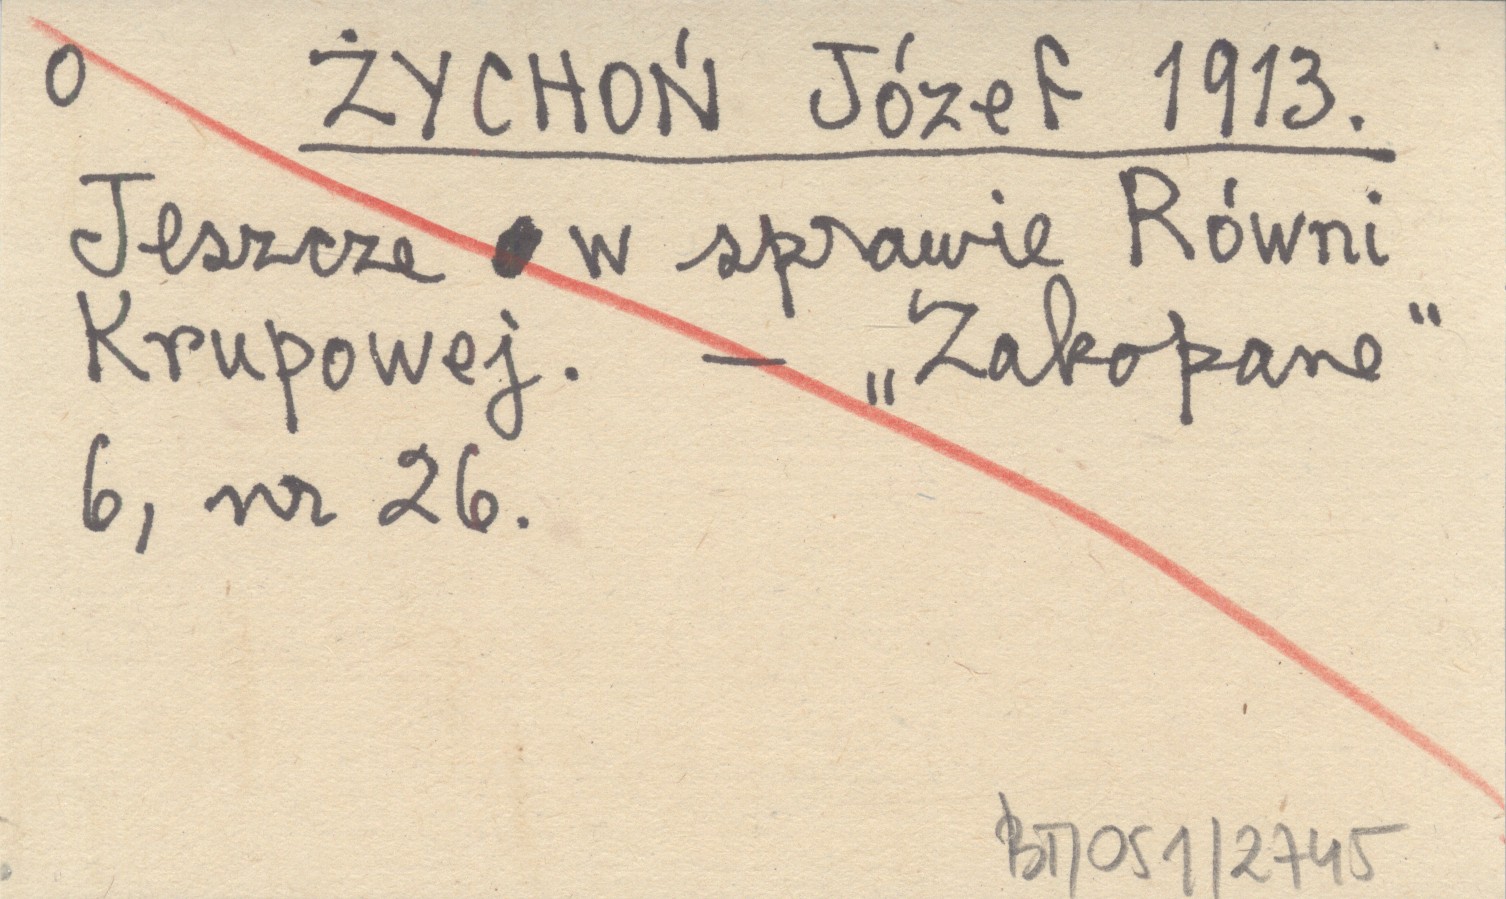 O ŻYCHOŃ Józef 1913.
Jeszcze w sprawie Równi
Krupowej. — „Zakopane"
6, nr 26.
BT/051/2745